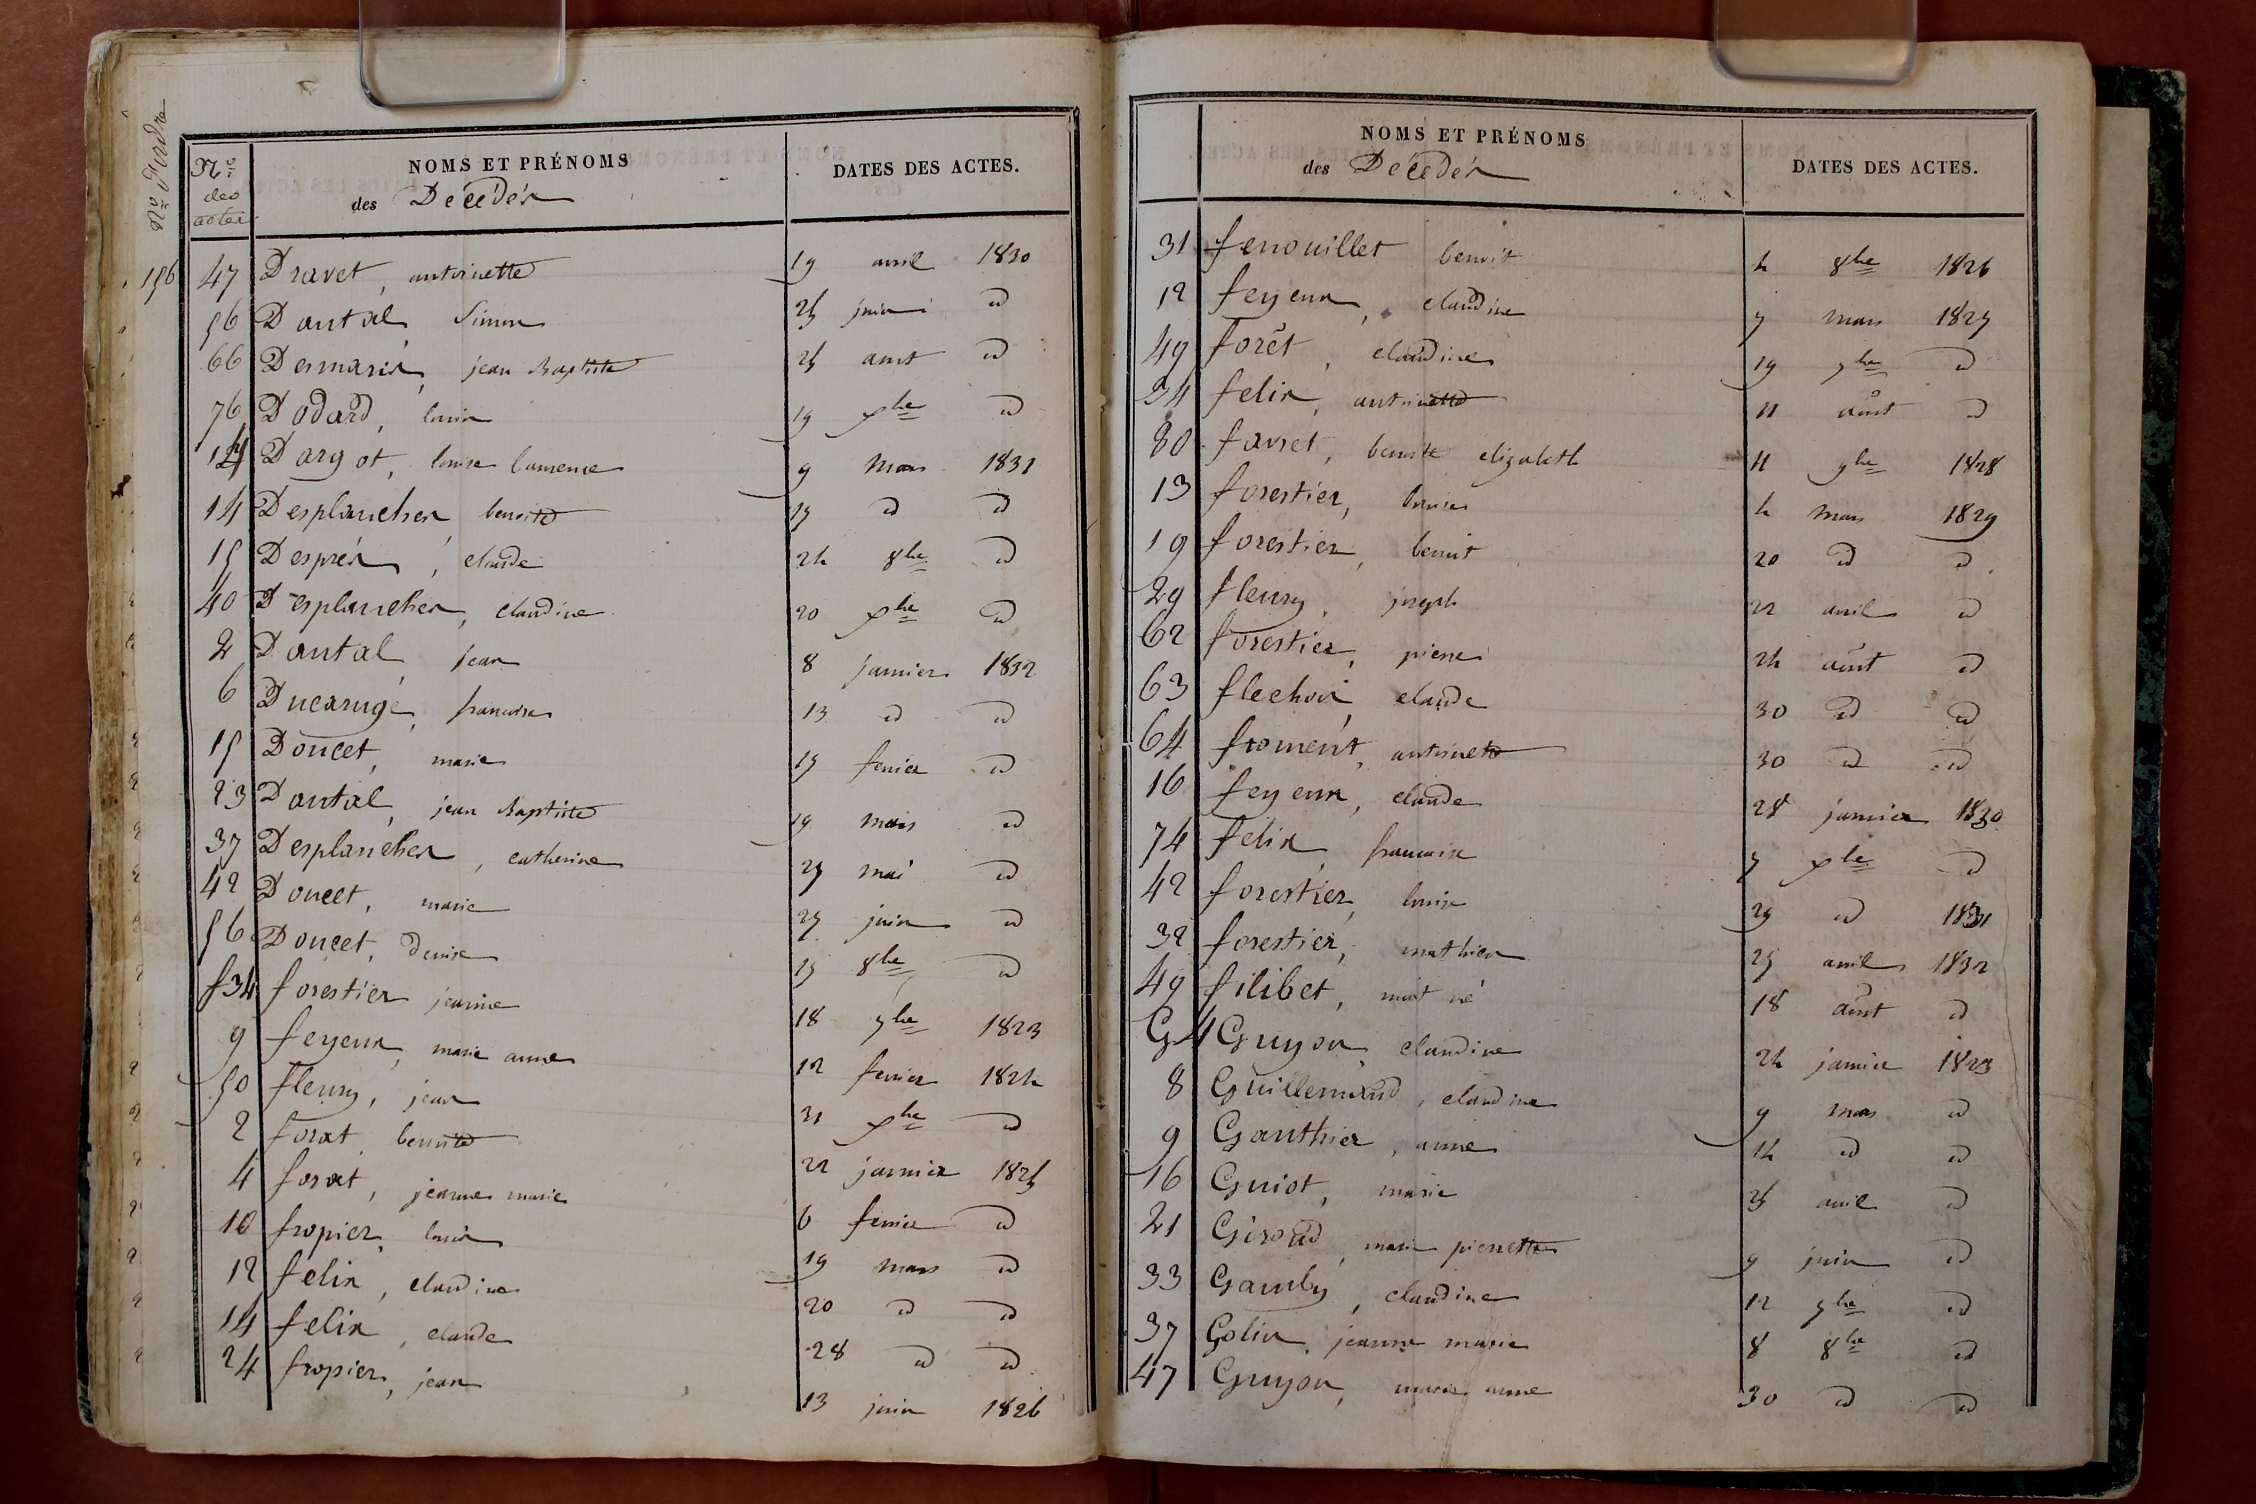 No d'ordre
Nos des actes
NOMS ET PRÉNOMS
des Décédés
DATES DES ACTES.
156 47 Dravet, antoinette 19 avril 1830
56 Dantal, Simon 25 juin id
66 Desmaris, jean Baptiste 25 aout id
76 Dodard, louis 19 xbre id
12 Dargot, louise laurence 9 mars 1831
14 Desplanches benoite 15 id id
15 Després, claude 24 8bre id
40 Desplanches, claudine 20 xbre id
2 Dantal, jean 8 janvier 1832
6 Ducarugé, francoise 13 id id
15 Doucet, marie 15 fevrier id
23 Dantal, jean Baptiste 19 mars id
37 Desplanches, catherine 25 mai id
42 Doucet, marie 25 juin id
56 Doucet, denise 15 8bre id
f 34 forestier jeanne 18 7bre 1823
9 feyeux, marie anne 12 fevrier 1824
50 fleury, jean 31 xbre id
2 forat, benoite 22 janvier 1825
4 forat, jeanne marie 6 fevrier id
10 fropier, louis 19 mars id
12 felix, claudine 20 id id
14 felix, claude 28 id id
24 fropier, jean 13 juin 1826
NOMS ET PRÉNOMS
des Décédés
DATES DES ACTES.
31 fenouillet benoit 4 8bre 1826
12 feyeux, claudine 7 mars 1827
49 forêt, claudine 19 7bre id
34 felix, antoinette 11 aout id
80 favret, benoite elizabeth 11 9bre 1828
13 forestier, louise 4 mars 1829
19 forestier, benoit 20 id id
29 fleury, joseph 22 avril id
62 forestier, pierre 24 août id
63 flechoir, claude 30 id id
64 froment, antoinette 30 id id
16 feyeux, claude 28 janvier 1830
74 felix, francoise 7 xbre id
42 forestier, louise 29 id 1831
32 forestier, mathieu 25 avril 1832
49 filibet, mort né 18 août id
G 4 Guyon, claudine 24 janvier 1823
8 Guillermind, claudine 9 mars id
9 Gauthier, anne 14 id id
16 Guiot, marie 25 avril id
21 Giroud, marie pierrette 9 juin id
33 Gamby, claudine 12 7bre id
37 Golin, jeanne marie 8 8bre id
47 Guyon, marie anne 30 id id